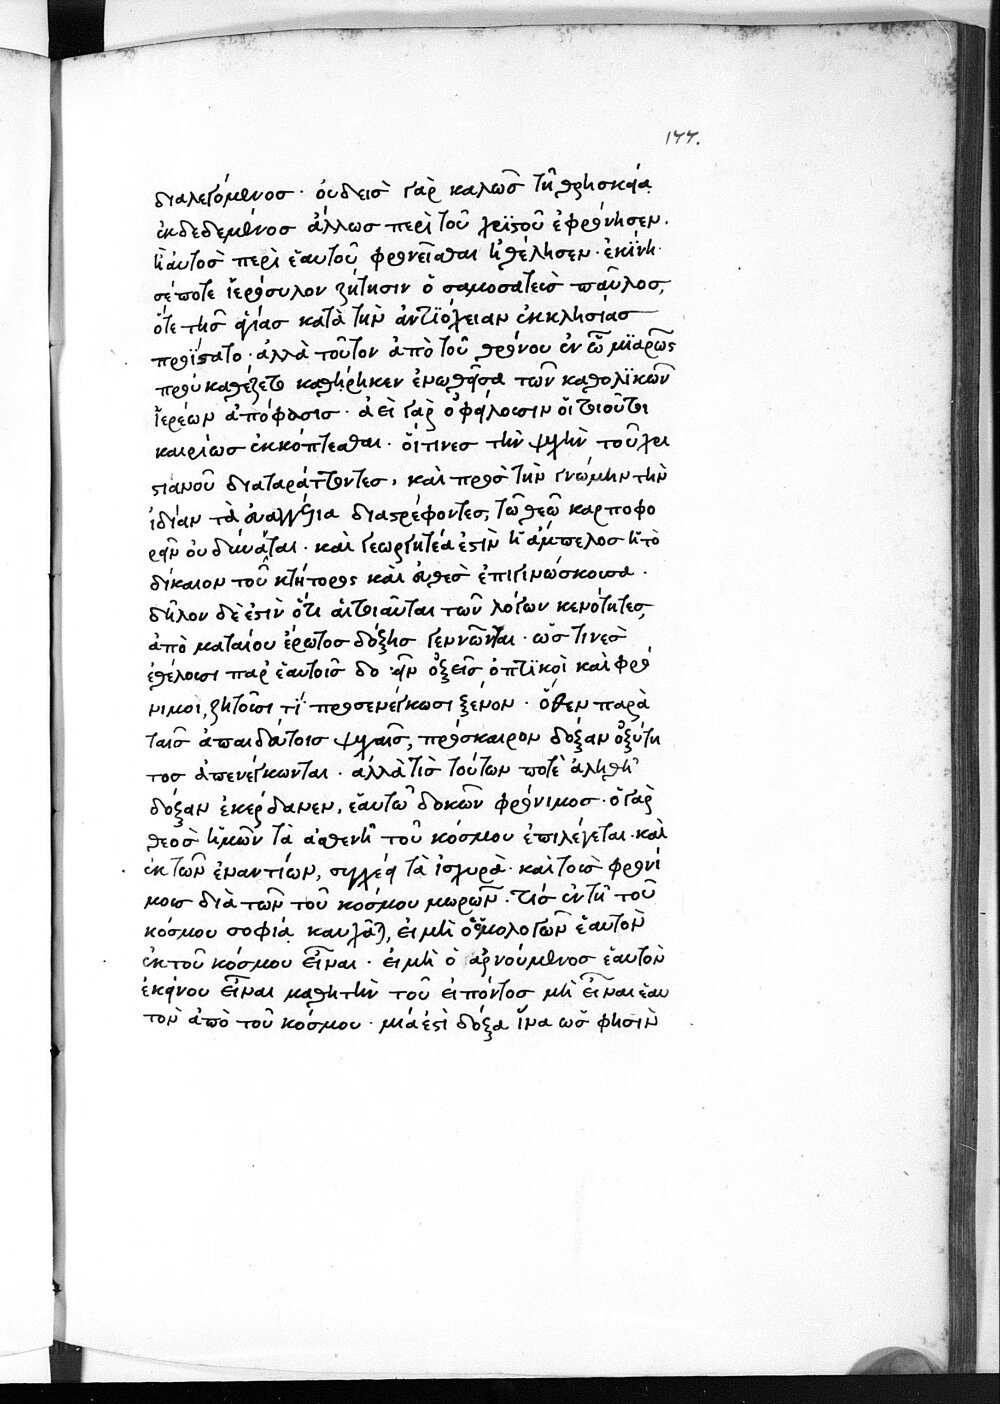 177.
διαλεγόμενος · ουδεὶς γὰρ καλῶς τῆ θρησκεία
ἐκδεδεμένος ἄλλως περὶ τοῦ χριστοῦ ἐφρόνησεν.
ἢ αυτὸς περὶ ἑαυτοῦ φρονεῖσθαι ἠθέλησεν · ἐκίνη
σέ ποτε ἱερόσυλον ζήτησιν ὁ σαμοσατεὺς παῦλος,
ὅτε τῆς ἁγίας κατὰ τὴν ἀντιόχειαν ἐκκλησίας
προΐστατο · ἀλλὰ τοῦτον ἀπὸ τοῦ θρόνου ἐν ὧ μιαρῶς
προυκαθέζετο καθήρηκεν ἑνωθεῖσα τῶν καθολικῶν
ἱερέων ἀπόφασις · ἀεὶ γὰρ ὀφείλουσιν οἱ τοιοῦτοι
καιρίως ἐκκόπτεσθαι · οἵτινες τὴν ψυχὴν τοῦ χρι
στιανοῦ διαταράττοντες, καὶ πρὸς τὴν γνώμην τὴν
ἰδίαν τὰ ευαγγέλια διαστρέφοντες, τῶ θεῶ καρποφο
ρεῖν ου δύναται · καὶ γεωργητέα ἐστὶν ἡ ἄμπελος ἡ τὸ
δίκαιον τοῦ κτήτορος καὶ ευθὲς ἐπιγινώσκουσα ·
δῆλον δὲ ἐστὶν ὅτι αἱ τοιαῦται τῶν λόγων κενότητες,
ἀπὸ ματαίου ἔρωτος δόξης γεννῶνται · ὥς τινες
ἐθέλουσι παρ ἑαυτοῖς δοκεῖν ὀξεῖς ὀπτικοὶ καὶ φρό
νιμοι, ζητοῦσι τί προσενέγκωσι ξένον · ὅθεν παρὰ
ταῖς ἀπαιδεύτοις ψυχαῖς, πρόσκαιρον δόξαν ὀξύτη
τος ἀπενέγκωνται · ἀλλὰ τίς τούτων ποτὲ ἀληθῆ
δόξαν ἐκέρδανεν, ἑαυτῶ δοκῶν φρόνιμος · ὁ γὰρ
θεὸς ἡμῶν τὰ ἀσθενῆ τοῦ κόσμου ἐπιλέγεται · καὶ
ἐκ τῶν ἐναντίων, συγχέει τὰ ἰσχυρὰ · καὶ τοὺς φρονί
μους διὰ τῶν τοῦ κόσμου μωρῶν · τίς ἐν τῆ τοῦ
κόσμου σοφία καυχᾶται, ει μὴ ὁ ὁμολογῶν ἑαυτὸν
ἐκ τοῦ κόσμου εἶναι · ει μὴ ὁ ἀρνούμενος ἑαυτὸν
ἐκείνου εἶναι μαθητὴν τοῦ ειπόντος μὴ εἶναι ἑαυ
τὸν ἀπὸ τοῦ κόσμου · μία ἐστὶ δόξα ἵνα ὥς φησιν